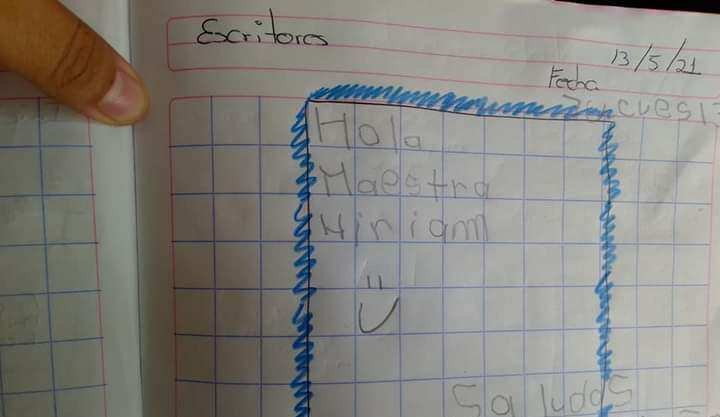 Escritores
13/5/21
Fecha
Hola
Maestra
Miriam
Saludos